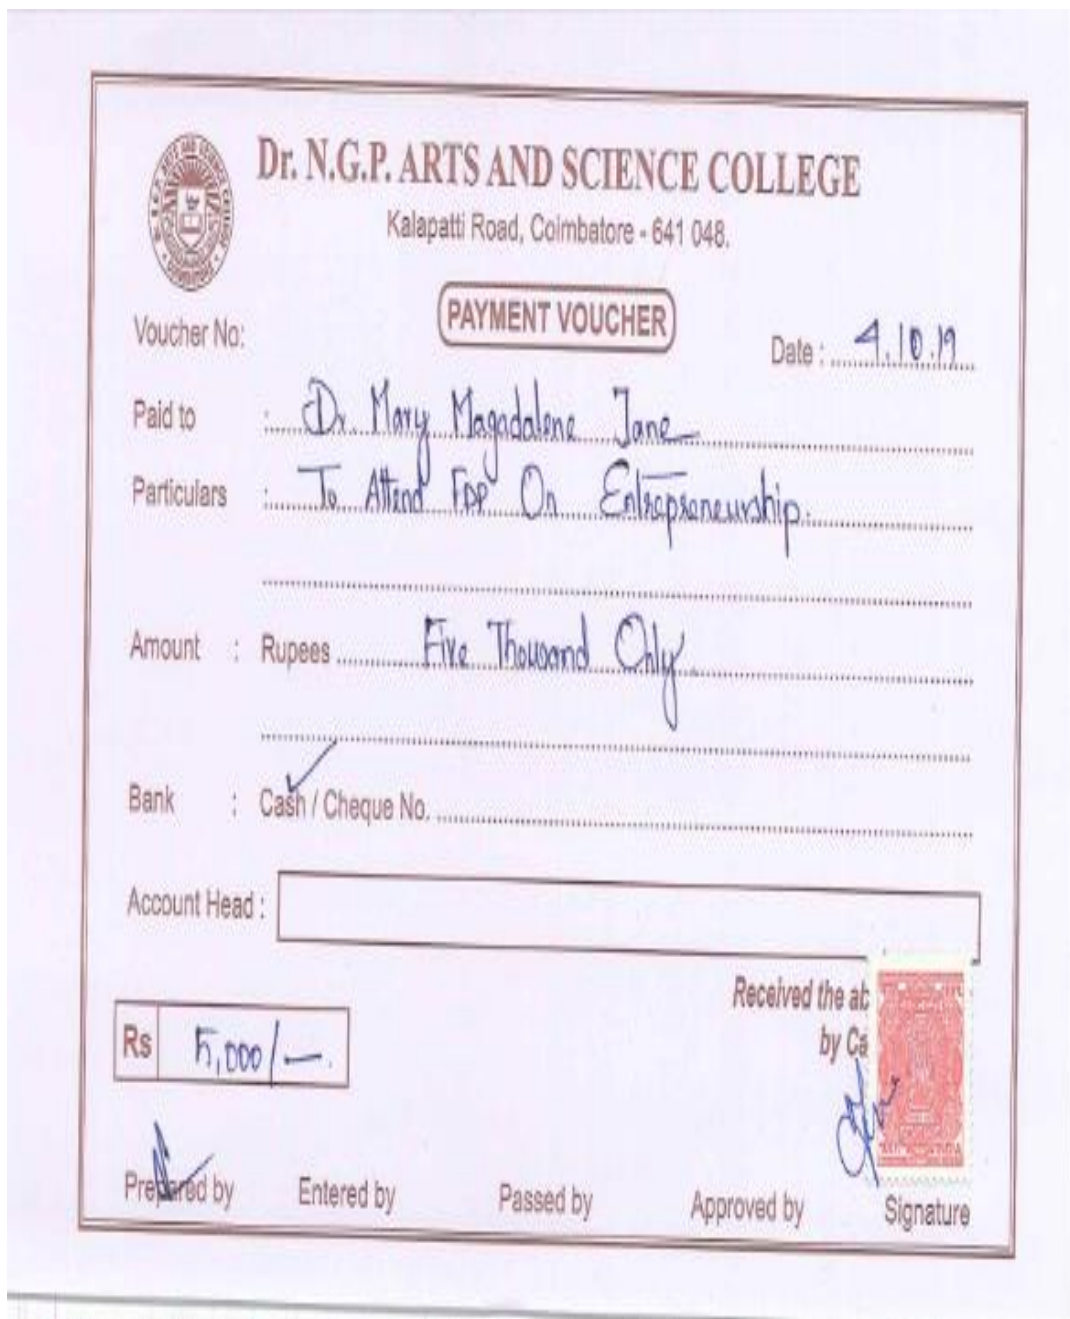 Dr. N.G.P. ARTS AND SCIENCE COLLEGE
Kalapatti Road, Coimbatore - 641 048.
PAYMENT VOUCHER
Voucher No:
Date : 4.10.19
Paid to : Dr. Mary Magadalene Jane
Particulars : To Attend FDP On Entrepreneurship.
Amount : Rupees Five Thousand Only.
Bank : Cash / Cheque No.
Account Head :
Received the ab
by Ca
Rs 5,000/-.
Prepared by Entered by Passed by Approved by Signature